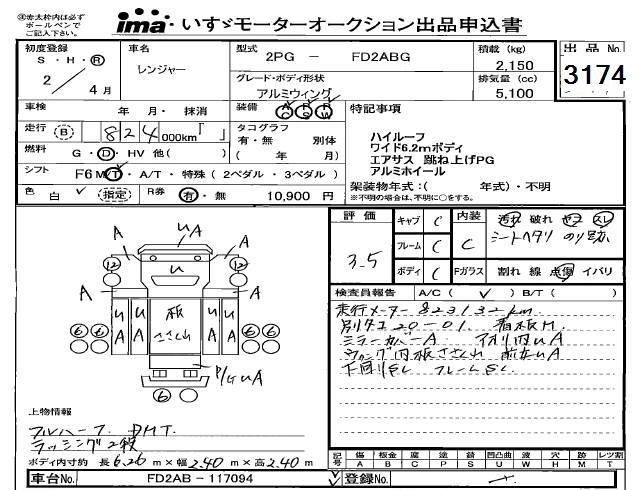 ※赤太枠内は必ず
ボールペンで
ご記入下さい。
ima いすゞモーターオークション出品申込書
初度登録
S・H・R
2 / 4月
車名
レンジャー
型式
2PG － FD2ABG
グレード・ボディ形状
アルミウィング
積載 (kg)
2,150
排気量 (cc)
5,100
出品No
3174
車検 年 月・抹消
装備 AC PS PW
走行 (B) 824 000km「 」
タコグラフ
有・無 別体
( 年 月)
燃料 G・D・HV 他( )
シフト F6 MT・A/T・特殊 ( 2ペダル・3ペダル )
色 白 (指定) R券 有・無 10,900 円
特記事項
ハイルーフ
ワイド6.2mボディ
エアサス 跳ね上げPG
アルミホイール
架装物年式:( 年式)・不明
※不明の場合は、不明に○をする。
評価
3.5
キャブ C
フレーム C
ボディ C
内装 C
Fガラス
汚れ 破れ コゲ スレ
シートヘタリ のり跡
割れ 線 点傷 イバリ
検査員報告 A/C( ✓ ) B/T( )
走行メーター 823132km
別タコ20-01.
ミラーカバーA
下回りSL フレームSL
A UA A
12 U 12
A A
UA UA 板 ささくれ UA UA
6 6 6 6
P/G UA
6
上物情報
フルハーフ. DMT.
ラッシング2段
ボディ内寸約 長6.26m×幅2.40m×高2.40m
記号 傷 A 板金 B 腐 C 塗 P 錆 S 凹凸曲 U 波 W 穴 H 跡 M レツ割 T
車台No. FD2AB－117094
登録No.